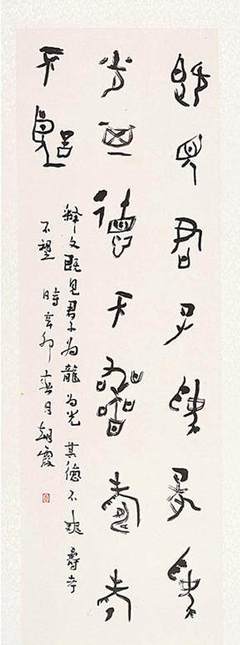 既見君子為龍為
光其德不爽壽考
不
釋文既見君子為龍為光 其德不爽 壽考
不望 時辛卯春月 朝霞